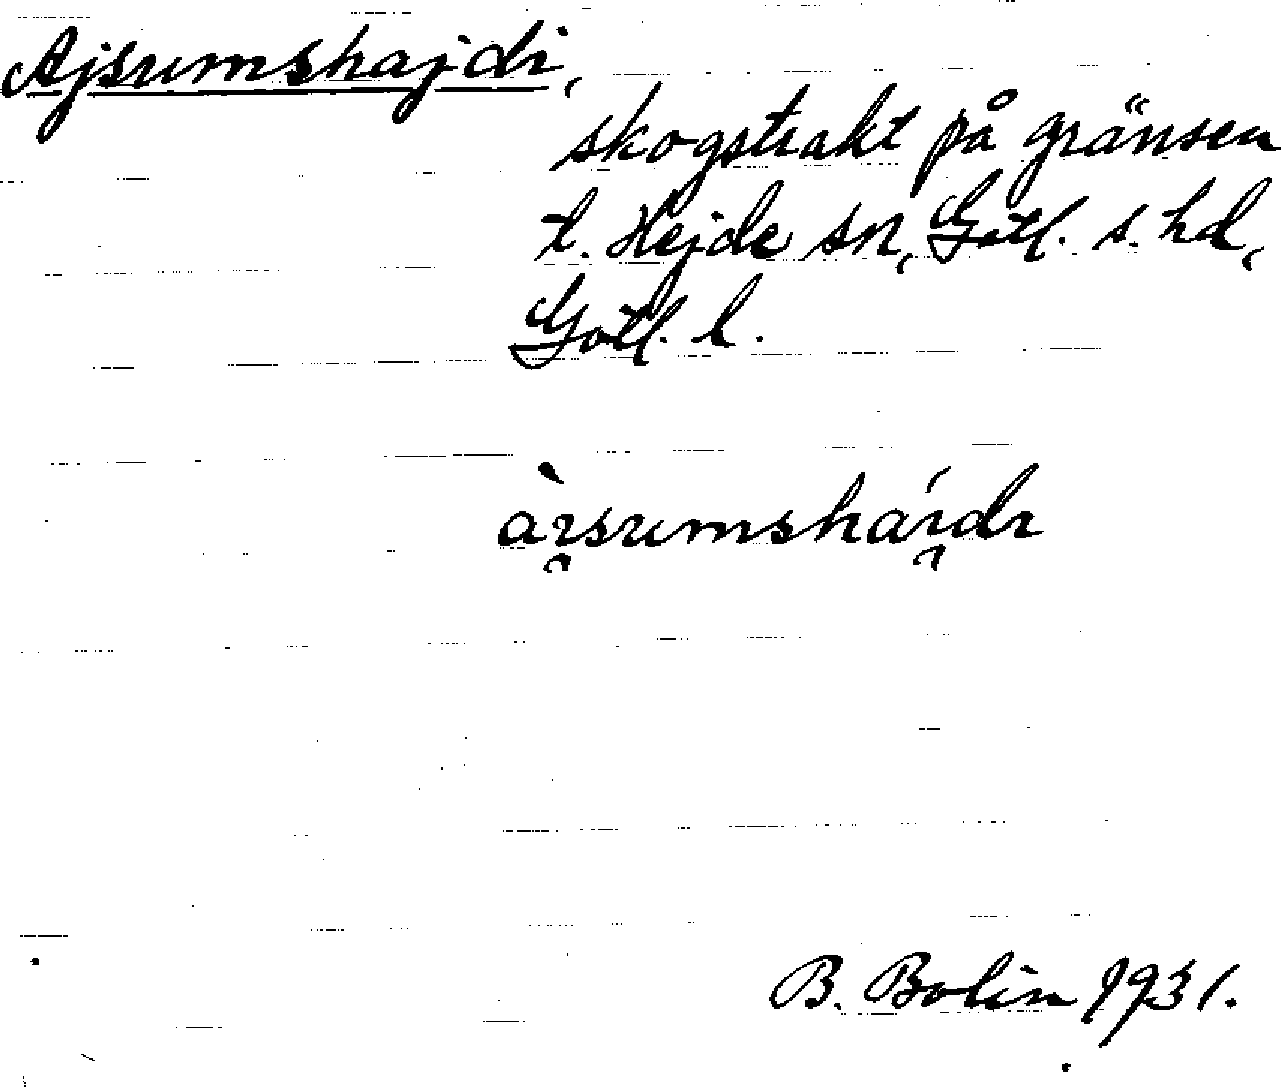 Ajsumshajdi,
skogstrakt på gränsen
t. Hejde sn, Gotl. s. hd,
Gotl. l.
B. Bolin 1931.